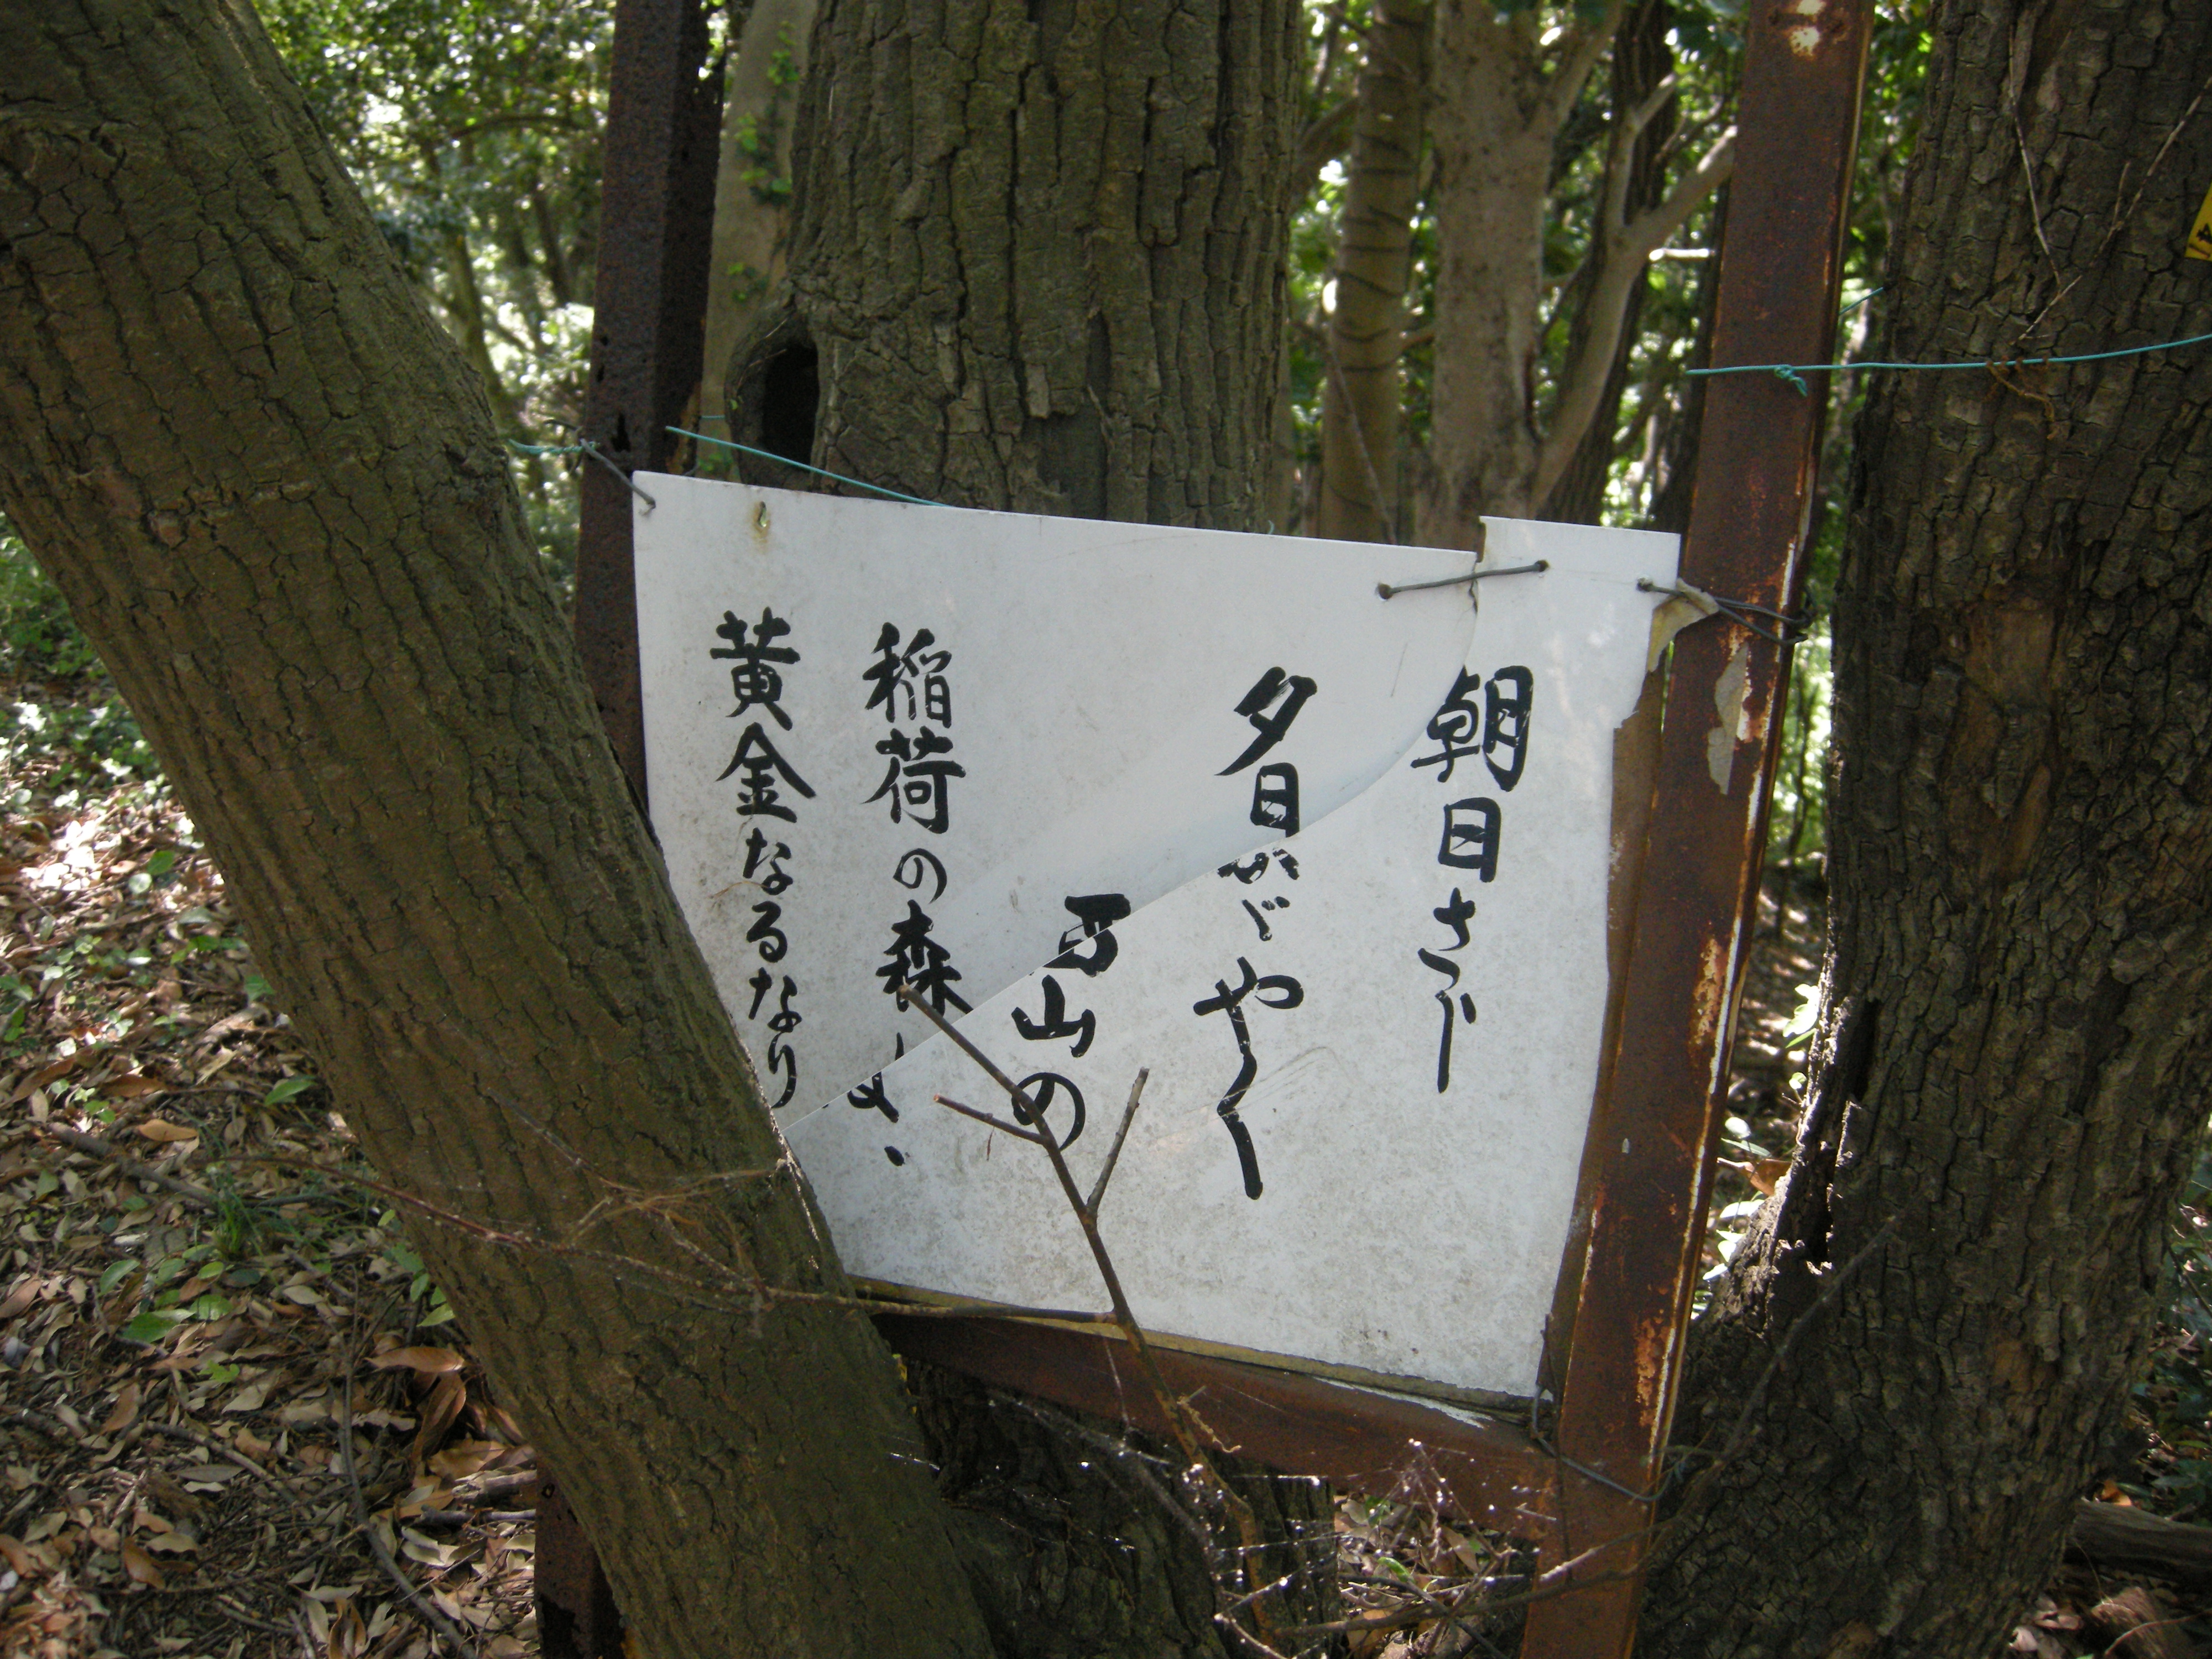 朝日さし
夕日かゞやく
山の
稲荷の森
黄金なるなり